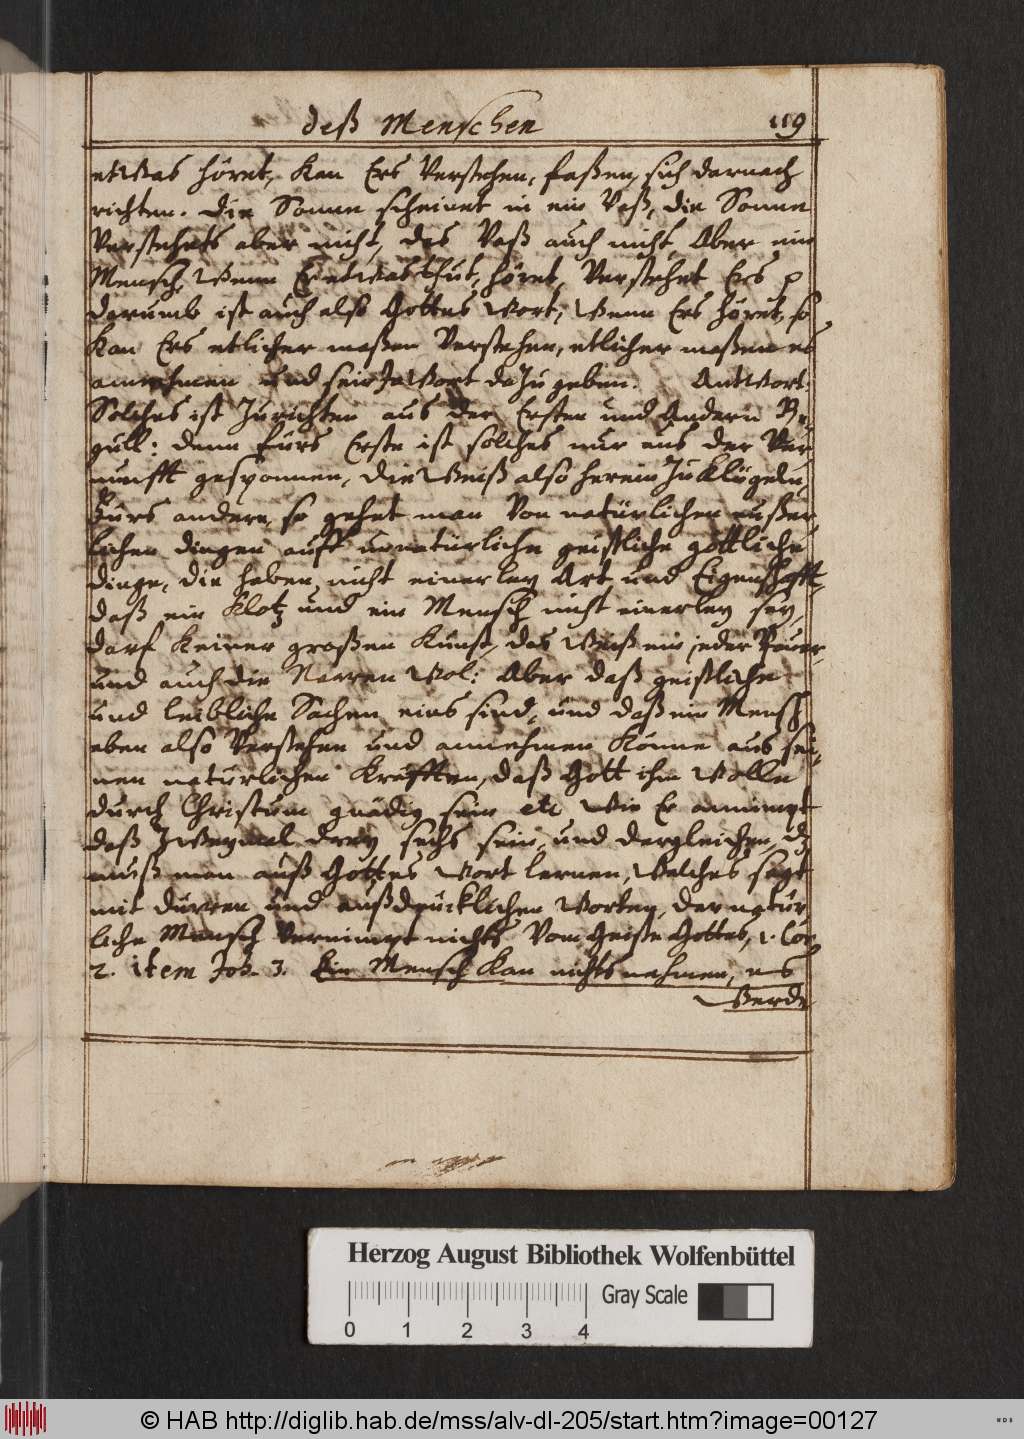 deß Menschen 119
etwas höret, kan Ers verstehen, faßen, sich darnach
richten. Die Sonne scheinet in ein Vaß, die Sonne
verstehets aber nicht, das Vaß auch nicht, Aber ein
Mensch, wenn Er etwas thut, höret, verstehet Ers p
darumb ist auch also Gottes wort, wenn Ers höret, so
kan Ers etlicher maßen verstehen, etlicher maßen es
annehmen und sein Ja wort dazu geben. Antwort.
Solches ist zurichten aus der Ersten und Andern Re,
gull: denn fürs Erste ist solches nur aus der Ver
nunfft gesponnen, die weiß also herein zu klügeln,
Fürs andere, so gehet man von natürlichen eußer,
lichen dingen auff unnatürliche geistliche göttliche
dinge, die haben nicht einerley Art und Eigenschafft,
daß ein Klotz und ein Mensch nicht einerley sey,
darf keiner großen Kunst, das weiß ein jeder Pauer,
und auch die Narren wol: Aber daß geistliche
und leibliche Sachen eins sind, und daß ein Mensch
eben also verstehen und annehmen könne aus sei,
nen natürlichen Kräfften, daß Gott ihm wolle
durch Christum gnädig sein etc wie Er annimpt
daß zweymal drey sechs sein, und dergleichen, dz
muß man auß Gottes wort lernen, welches sagt
mit dürren und außdrücklichen worten, der natür
liche Mensch vernimpt nichts vom Geiste Gottes, 1. Cor
2. item Joh. 3. Ein Mensch kan nichts nehmen, es
werde
Herzog August Bibliothek Wolfenbüttel
Gray Scale
0 1 2 3 4
© HAB http://diglib.hab.de/mss/alv-dl-205/start.htm?image=00127
WDB